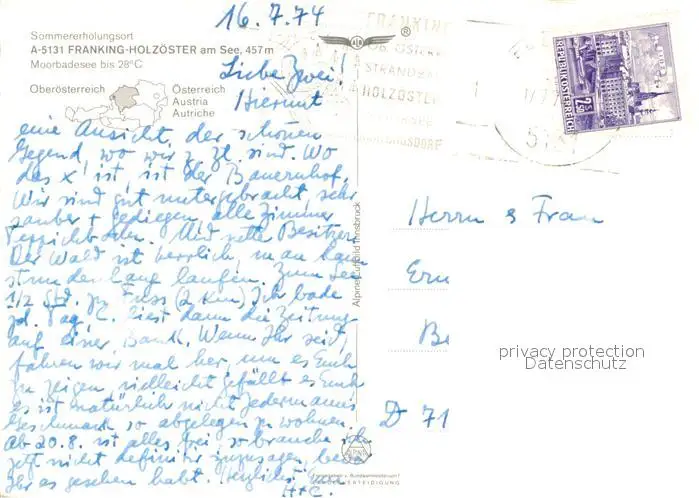 16.7.74
Sommererholungsort
A-5131 FRANKING-HOLZÖSTER am See, 457m
Moorbadesee bis 28°C
Oberösterreich
Österreich
Austria
Autriche
®
FRANKING
OB. ÖSTERR
STRANDBA
HOLZÖSTER
REPUBLIK ÖSTERREICH
2.50
Liebe Zwei!
Hiermit
eine Ansicht der schönen
Gegend, wo wir z. Zt. sind. Wo
das x ist, ist der Bauernhof.
Wir sind gut untergebracht, sehr
sauber + gediegen, alle Zimmer
Teppichboden. Und nette Besitzer.
Der Wald ist herrlich, man kann
stundenlang laufen. Zum See
1/2 Std. zu Fuss (2 km). Ich bade
jd. Tag, C. liest dann die Zeitung
auf einer Bank. Wenn Ihr seid,
fahren wir mal her, um es Euch
zu zeigen, vielleicht gefällt es Euch
Es ist natürlich nicht jedermanns
Geschmack so abgelegen zu wohnen.
Ab 20.8. ist alles frei, so brauche ich
jetzt nicht definitiv zuzusagen, bevor
Ihr es gesehen habt. Herzlichst Eure
H + C.
Alpine Luftbild Innsbruck
Herrn & Frau
Ern
Be
D 71
privacy protection
Datenschutz